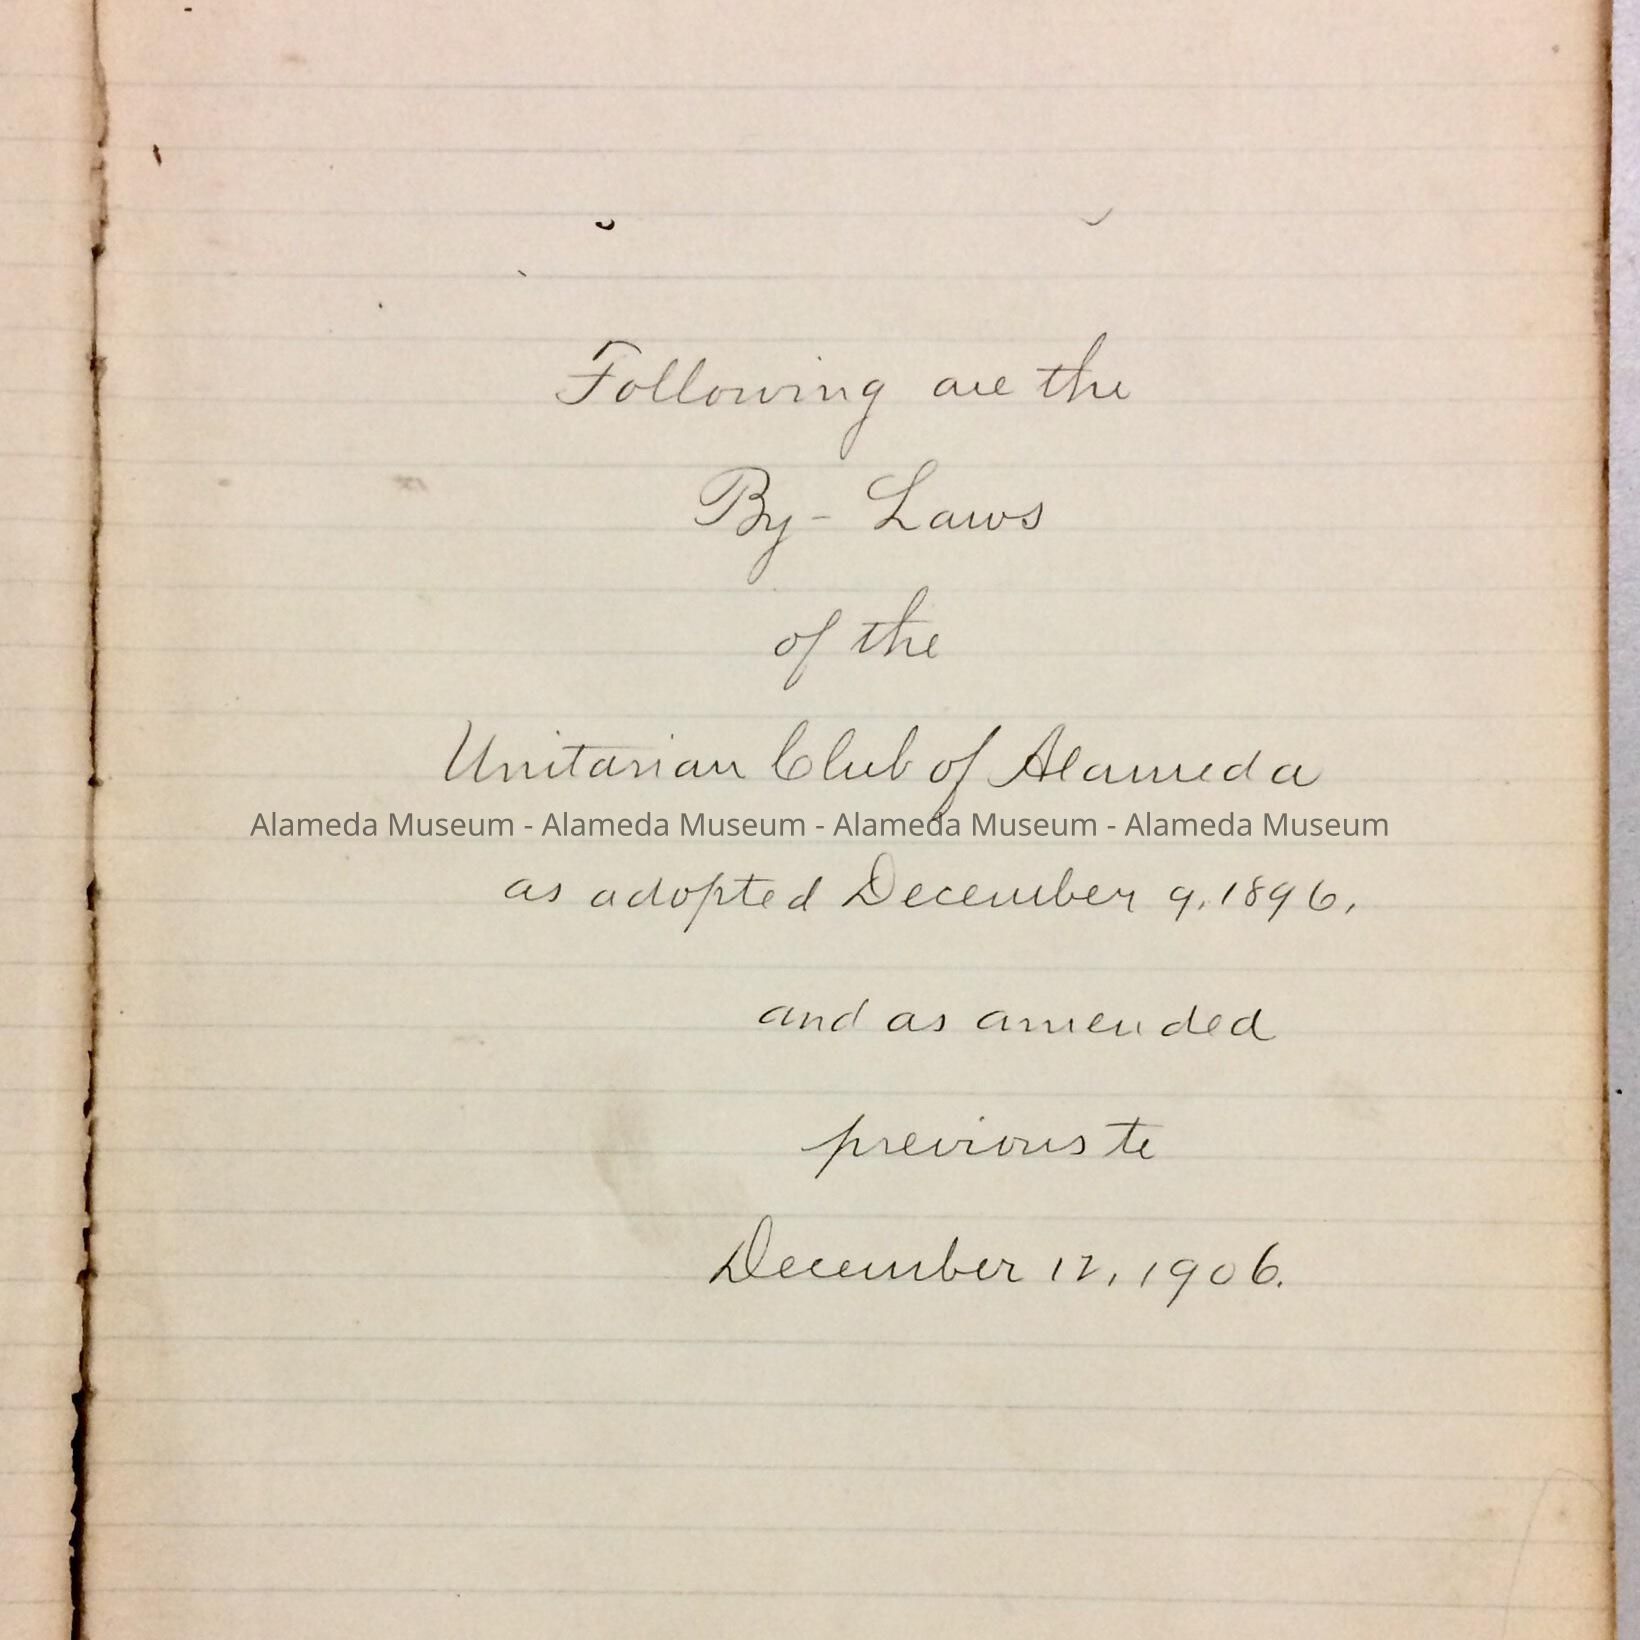 Following are the
By-Laws
of the
Unitarian Club of Alameda
Alameda Museum - Alameda Museum - Alameda Museum - Alameda Museum
as adopted December 9, 1896,
and as amended
previous to
December 12, 1906.